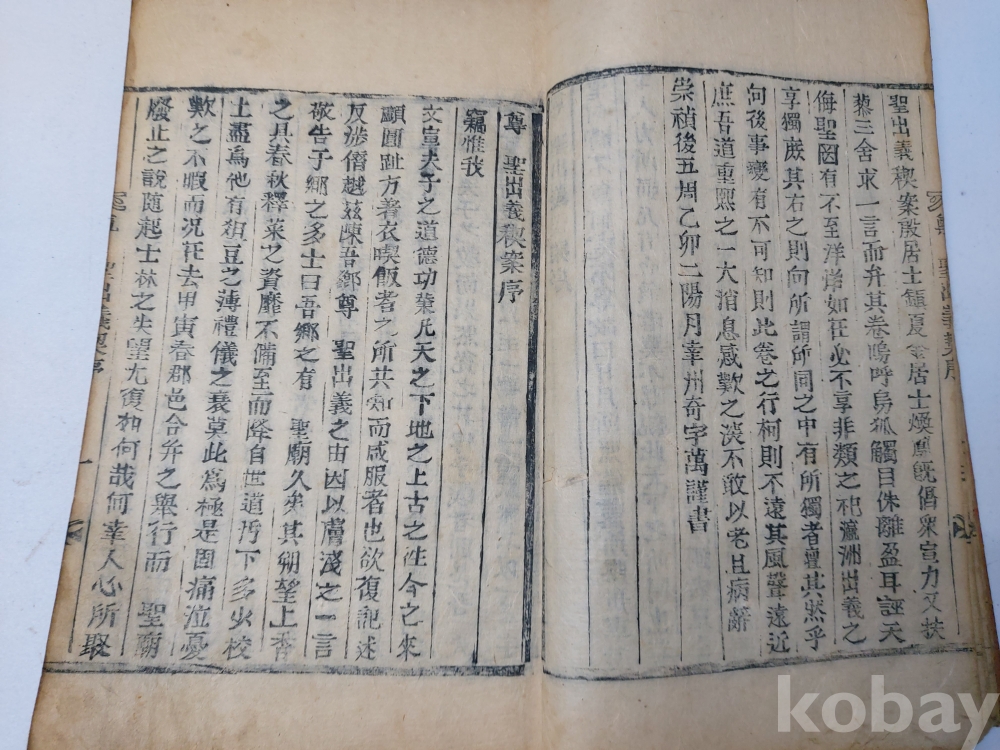 聖出義稧案敬居士鎭夏 居士煥 旣僝衆宣力又扶
藜三舍求一言而弁其卷嗚呼烏狐觸目侏離盈耳誣天
侮聖罔有不至洋洋如在必不享非類之祀瀛洲出義之
享獨歲其右之則向所謂所同之中有所獨者亶其然乎
向後事變有不可知則此卷之行柯則不遠其風聲遠近
庶吾道重熙之一大消息感歎之深不敢以老且病辭
崇禎後五周乙卯二陽月幸州奇宇萬謹書
尊 聖出義稧案序
竊惟我
文宣夫子之道德功業凡天之下地之上古之往今之來
顱圓趾方著衣喫飯者之所共知而咸服者也欲復記述
反涉僭越玆陳吾鄕尊 聖出義之由因以膚淺之一言
敬告于鄕之多士曰吾鄕之有 聖廟久矣其朔望上香
之具春秋釋菜之資靡不備至而降自世道汚下多少校
土盡爲他有俎豆之薄禮儀之衰莫此爲極是固痛泣憂
歎之不暇而况在去甲寅春郡邑合弁之擧行而 聖廟
廢止之說随起士林之失望尤復如何哉何幸人心所聚
聖出義稧案序
一
kobay